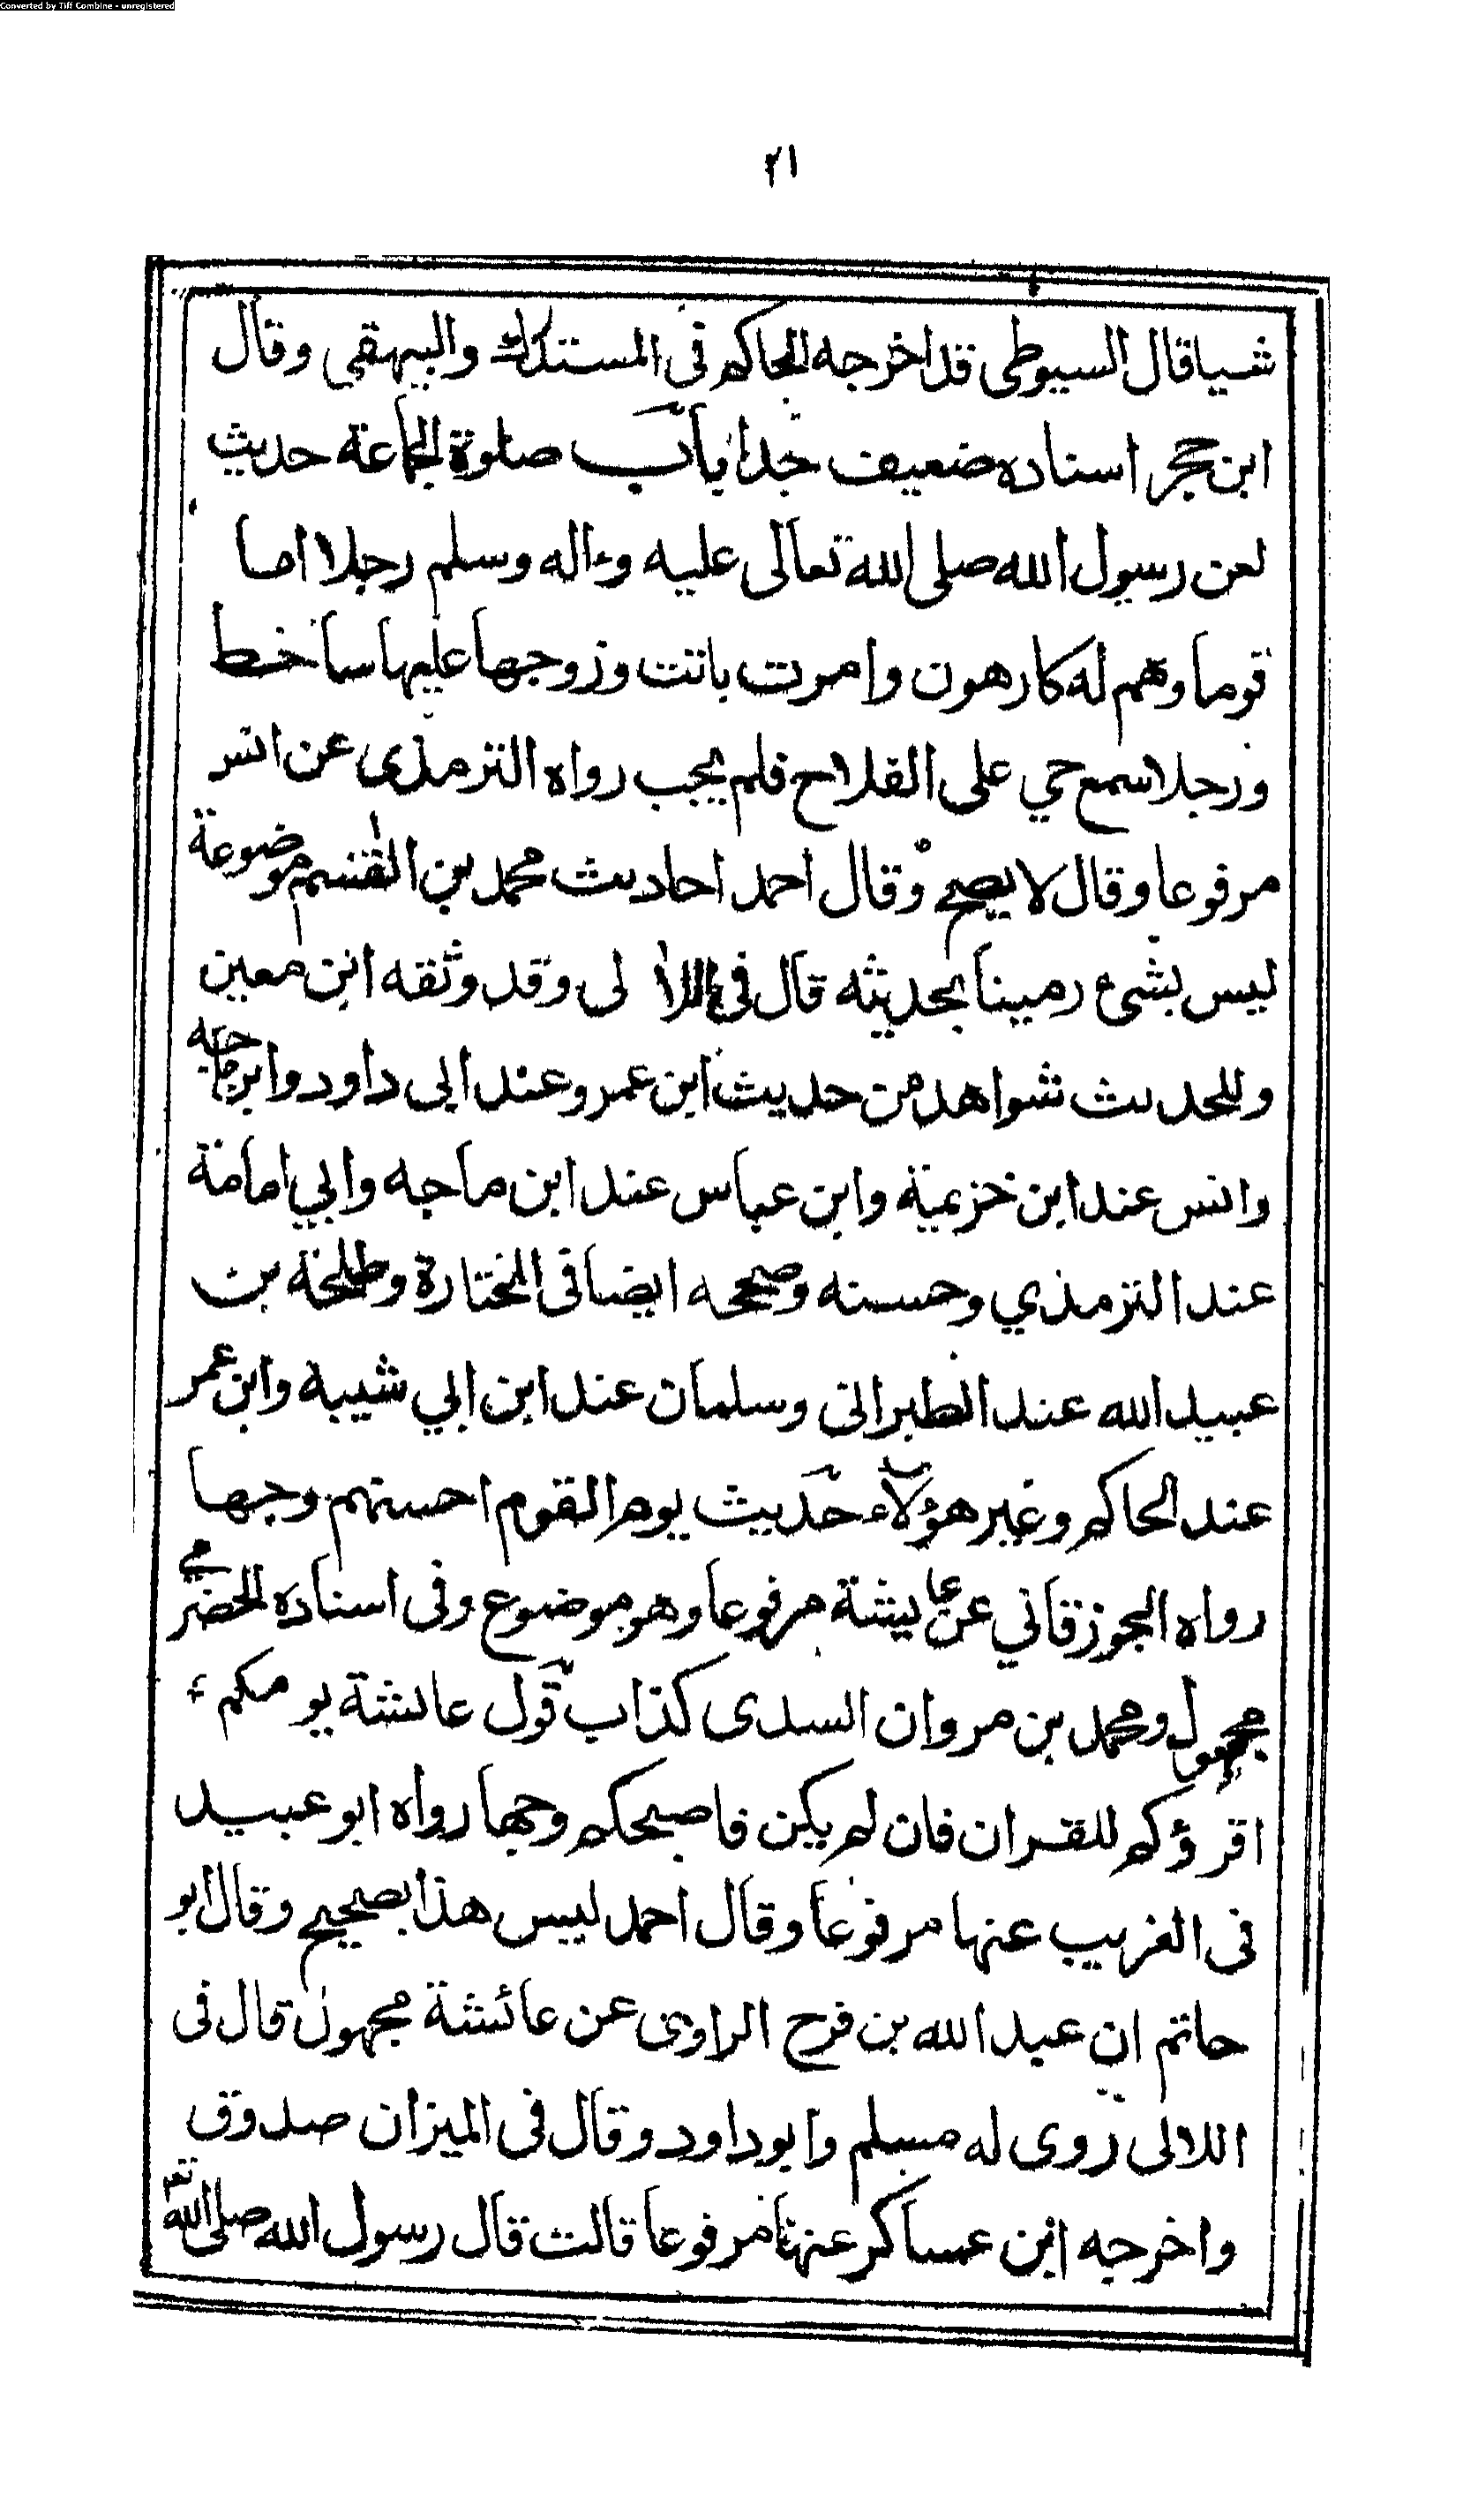 Converted by Tiff Combine - unregistered
٢١
شيا قال السيوطى قد اخرجه الحاكم فى المستدرك والبيهقى وقال
ابن حجر اسناده ضعيف جدا باب صلوة الجماعة حديث
لعن رسول الله صلى الله تعالى عليه وءاله وسلم رجلا اما
قوما وهم له كارهون وامرت باتت وزوجها عليها ساخط
ورجلا سمع حي على الفلاح فلم يجب رواه الترمذى عن انس
مرفوعا وقال لا يصح وقال احمد احاديث محمد بن القٰسم موضوعة
ليس بشىء رمينا بحديثه قال فى اللالى وقد وثقه ابن معين
وللحديث شواهد من حديث ابن عمرو عند ابى داود وابن ماجه
وانس عند ابن خزيمة وابن عباس عند ابن ماجه وابي امامة
عند الترمذي وحسنه وصححه ايضا فى المختارة وطلحة بن
عبيد الله عند الطبرانى وسلمان عند ابن ابي شيبة وابن عمر
عند الحاكم وغير هؤلاء حديث يوم القوم احسنهم وجها
رواه الجوزقاني عن عايشة مرفوعا وهو موضوع وفى اسناده الحضرمي
مجهول ومحمد بن مروان السدى كذاب قول عائشة يومكم
اقرؤكم للقران فان لم يكن فاصبحكم وجها رواه ابو عبيد
فى الغريب عنها مرفوعا وقال احمد ليس هذا بصحيح وقال ابو
حاتم ان عبد الله بن فرح الراوى عن عائشة مجهول قال فى
اللالى روى له مسلم وابو داود وقال فى الميزان صدوق
واخرجه ابن عساكر عنها مرفوعا قالت قال رسول الله صلى الله